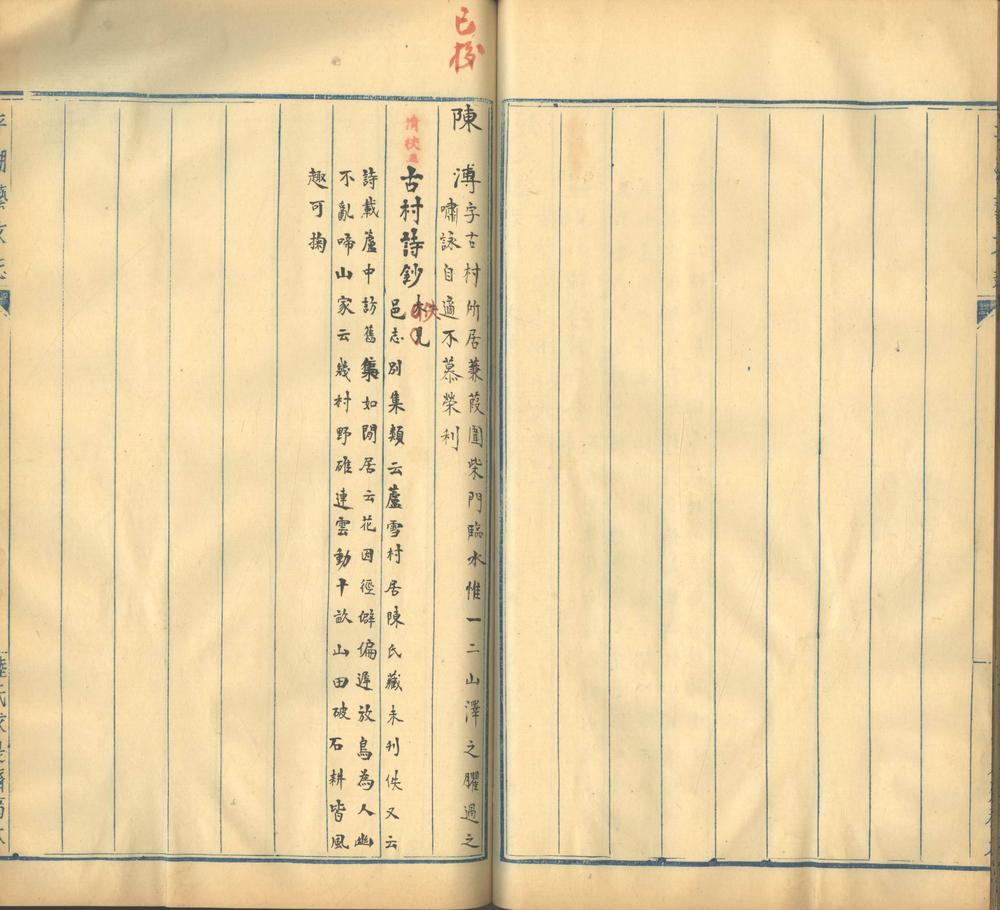 已校
陳溥字古村所居蒹葭圍柴門臨水惟一二山澤之臞過之
嘯詠自適不慕榮利
古村詩鈔未見
佚
邑志別集類云蘆雪村居陳氏藏未刊佚又云
詩載蘆中訪舊集如閒居云花因徑僻偏遲放鳥為人幽
不亂啼山家云幾村野碓連雲動十畝山田破石耕皆風
趣可掬
平湖藝文志
陸氏求是齋寫本